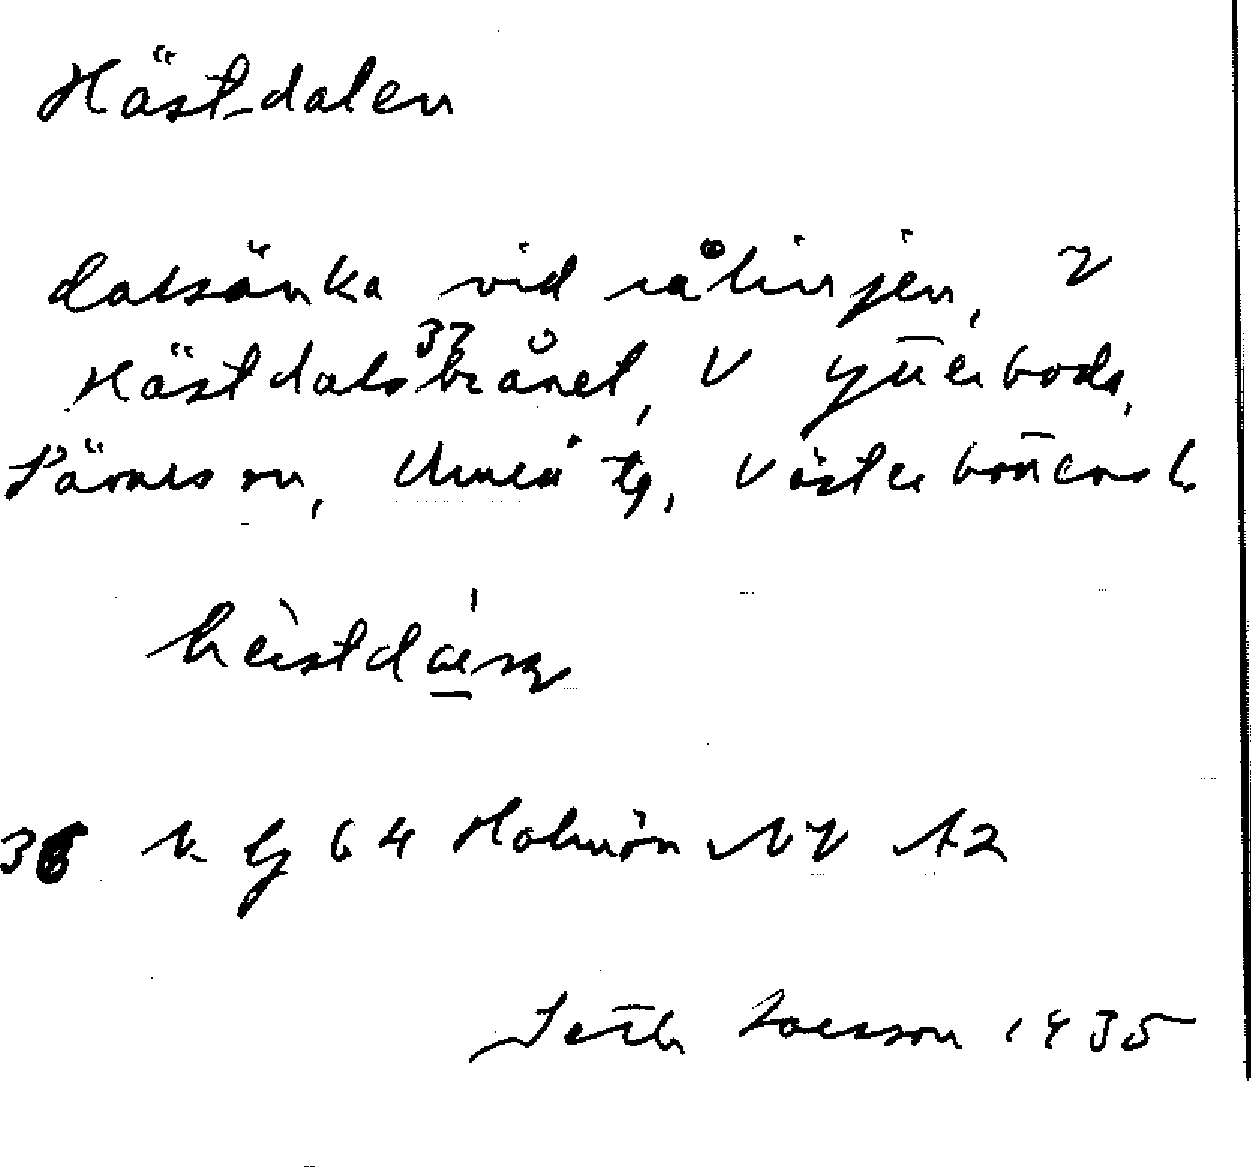 Hästdalen
dalsänka vid rålinjen, V
Hästdalsbrånet, 37 V Ytterboda,
Sävars sn, Umeå tg, Västerbottens l.
hèistdáEn
36 k Eg 64 Holmön NV A2
Seth Larsson 1935